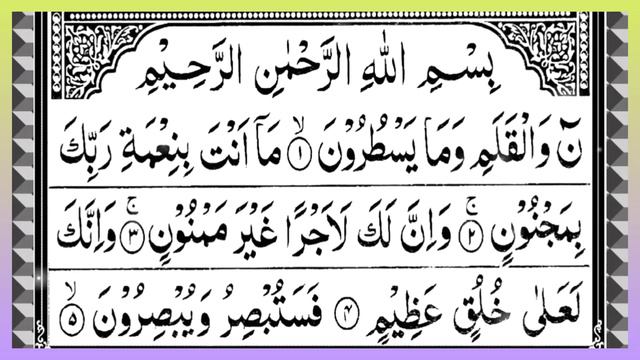 بِسْمِ اللّٰهِ الرَّحْمٰنِ الرَّحِيْمِ
نٓ وَالْقَلَمِ وَمَا يَسْطُرُوْنَ ۙ﴿۱﴾ مَاۤ اَنْتَ بِنِعْمَةِ رَبِّكَ
بِمَجْنُوْنٍ ۚ﴿۲﴾ وَاِنَّ لَكَ لَاَجْرًا غَيْرَ مَمْنُوْنٍ ۚ﴿۳﴾ وَاِنَّكَ
لَعَلٰى خُلُقٍ عَظِيْمٍ ﴿۴﴾ فَسَتُبْصِرُ وَيُبْصِرُوْنَ ۙ﴿۵﴾